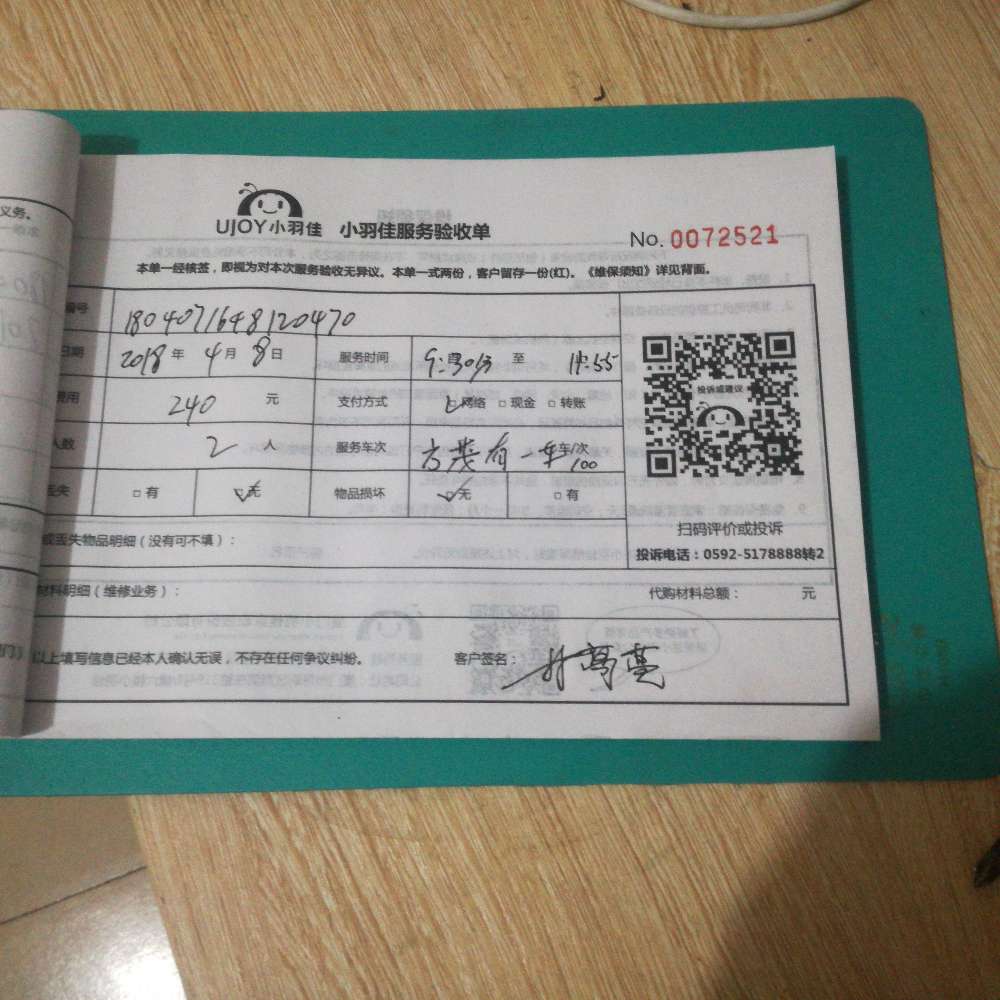 义务。
UJOY小羽佳 小羽佳服务验收单
No. 0072521
本单一经核签，即视为对本次服务验收无异议。本单一式两份，客户留存一份(红)。《维保须知》详见背面。
编号 1804071648120470
日期 2018 年 4 月 8 日 服务时间 9:30分 至 11:55
费用 240 元 支付方式 □网络 □现金 □转账
人数 2 人 服务车次 有一车 车/次
100
丢失 □有 □无 物品损坏 □无 □有
投诉或建议
扫码评价或投诉
投诉电话：0592-5178888转2
或丢失物品明细（没有可不填）：
材料明细（维修业务）： 代购材料总额： 元
以上填写信息已经本人确认无误，不存在任何争议纠纷。 客户签名：